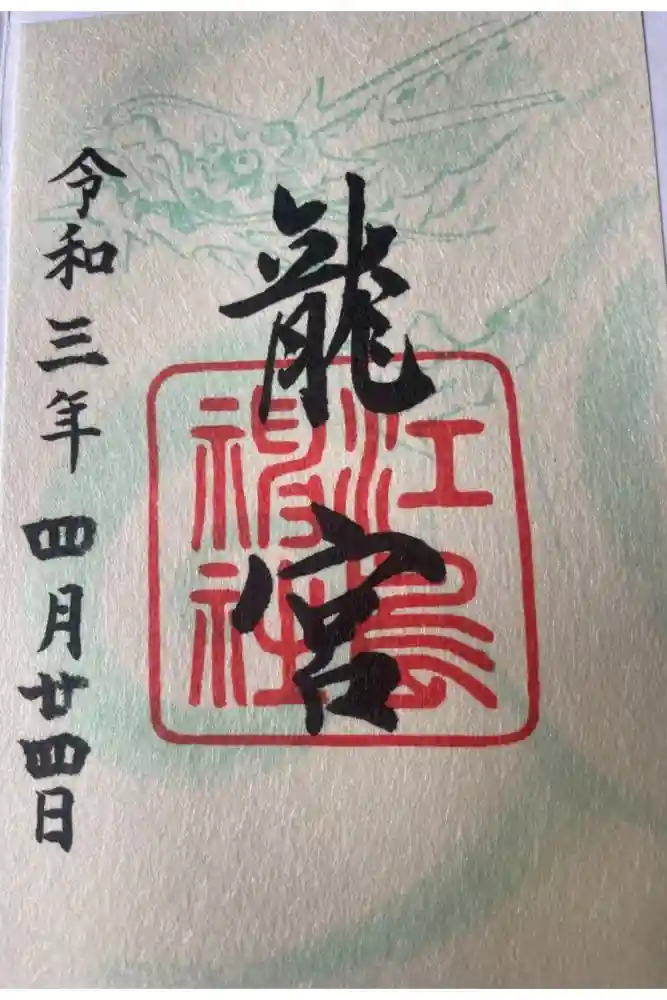 龍宮
江島
神社
令和三年 四月廿四日